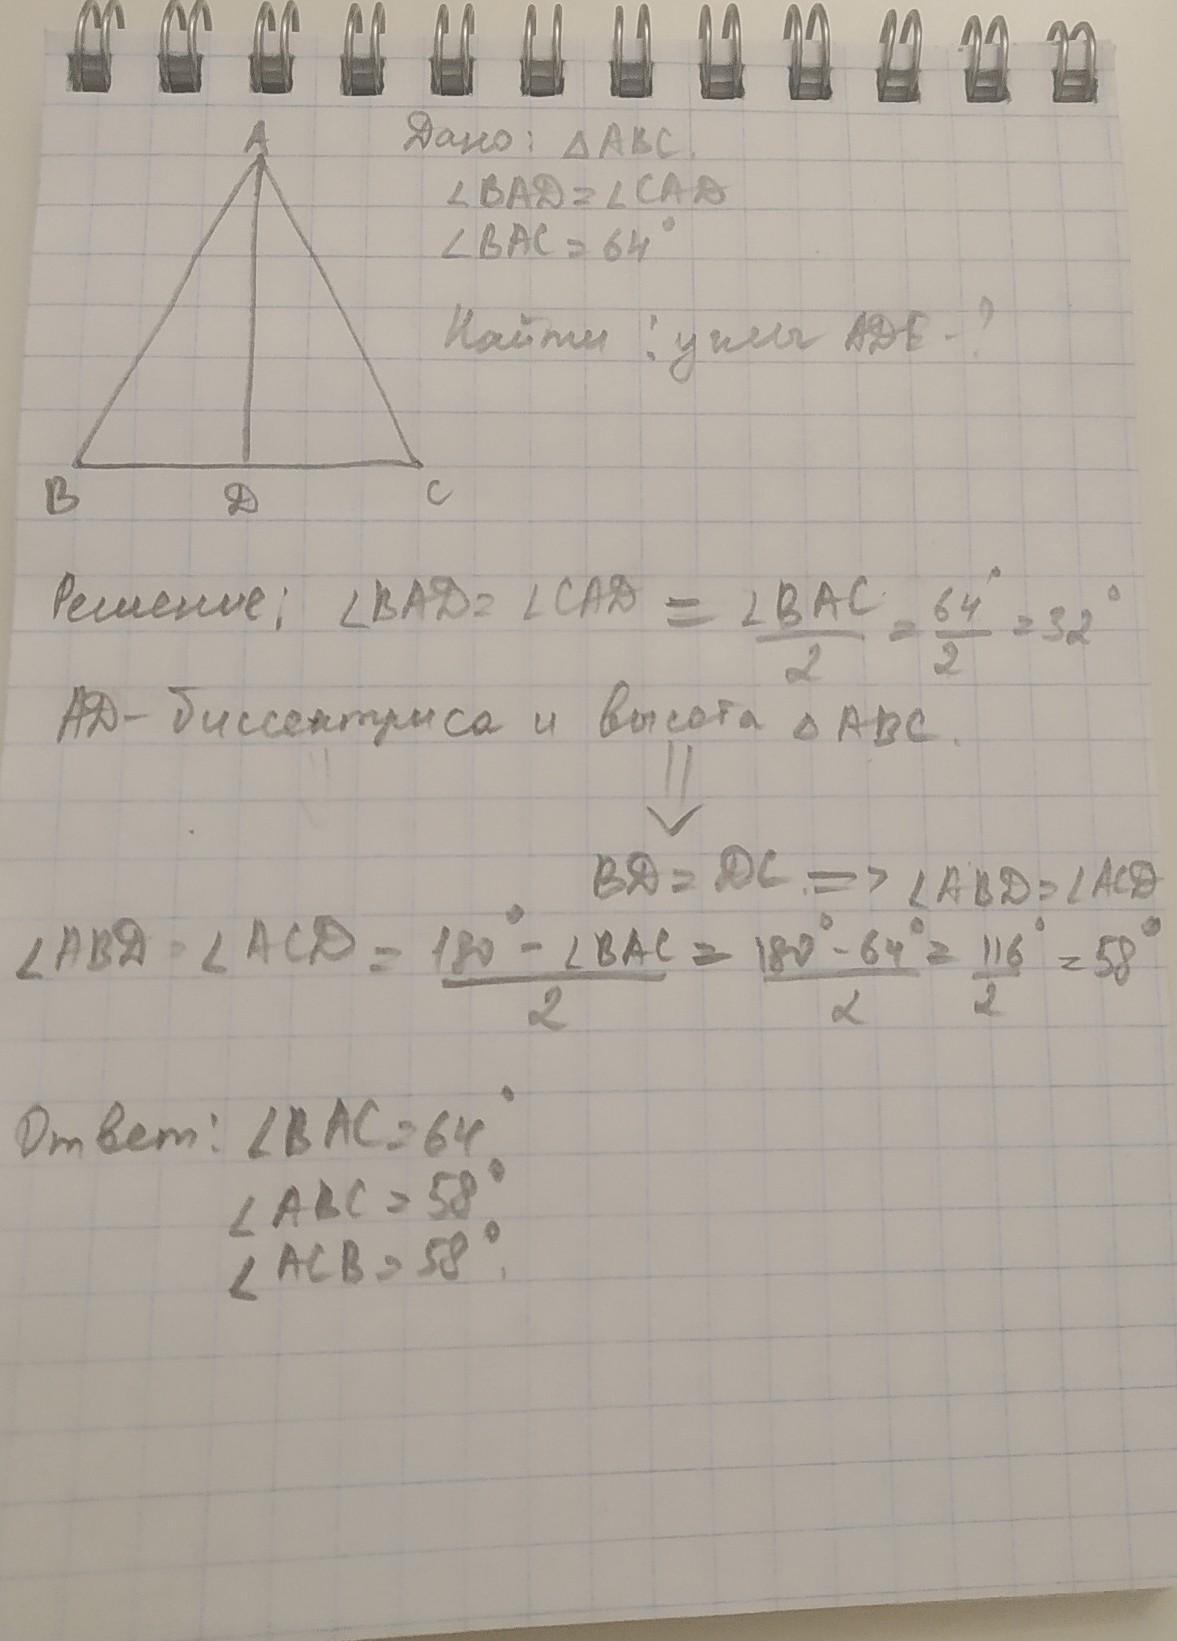 A
B
D
C
Дано: △ABC.
∠BAD = ∠CAD
∠BAC = 64°
Найти: углы ADE - ?
Решение: ∠BAD = ∠CAD = ∠BAC/2 = 64°/2 = 32°
AD - биссектриса и высота △ABC.
⇓
BD = DC. => ∠ABD = ∠ACD
∠ABD = ∠ACD = 180° - ∠BAC/2 = 180° - 64°/2 = 116°/2 = 58°
Ответ: ∠BAC = 64°
∠ABC = 58°
∠ACB = 58°.